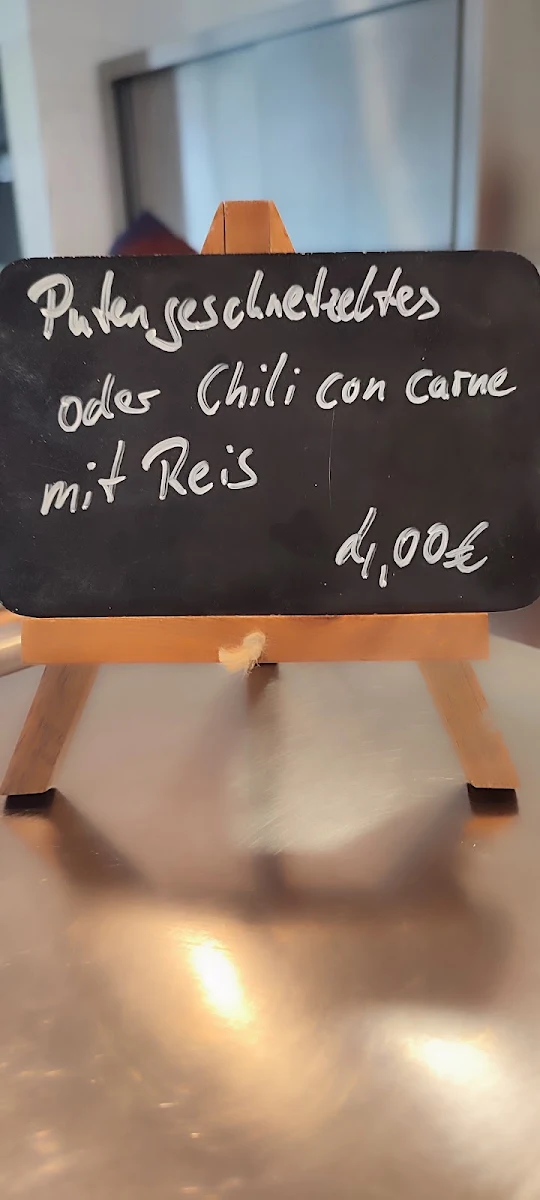 Putengeschnetzeltes
oder Chili con carne
mit Reis
4,00€